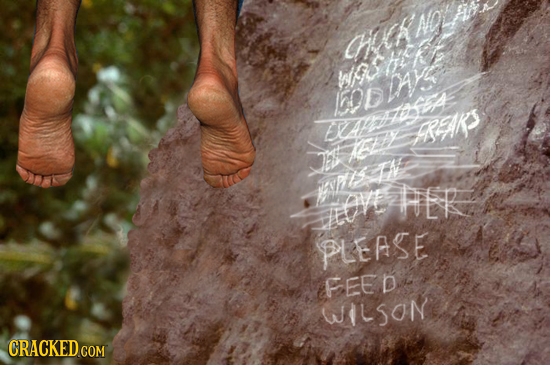 CHUCK NOLAND
WAS HERE
1500 DAYS
ESCAPED TO SEA
TELL KELLY FREARS
MEMPHIS TN
I LOVE HER
PLEASE
FEED
WILSON
CRACKED.COM